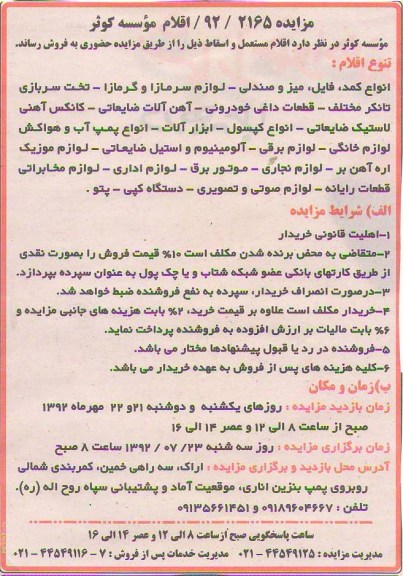 مزایده ۲۱۶۵ / ۹۲ / اقلام مؤسسه کوثر
مؤسسه کوثر در نظر دارد اقلام مستعمل و اسقاط ذیل را از طریق مزایده حضوری به فروش رساند.
تنوع اقلام :
انواع کمد، فایل، میز و صندلی – لوازم سرمازا و گرمازا – تخت سربازی
تانکر مختلف – قطعات داغی خودرونی – آهن آلات ضایعاتی – کانکس آهنی
لاستیک ضایعاتی – انواع کپسول – ابزار آلات – انواع پمپ آب و هواکش
لوازم خانگی – لوازم برقی – آلومینیوم و استیل ضایعاتی – لوازم موزیک
اره آهن بر – لوازم نجاری – موتور برق – لوازم اداری – لوازم مخابراتی
قطعات رایانه – لوازم صوتی و تصویری – دستگاه کپی – پتو .
الف) شرایط مزایده
۱-اهلیت قانونی خریدار
۲-متقاضی به محض برنده شدن مکلف است ۱۰% قیمت فروش را بصورت نقدی
از طریق کارتهای بانکی عضو شبکه شتاب و یا چک پول به عنوان سپرده بپردازد.
۳-درصورت انصراف خریدار، سپرده به نفع فروشنده ضبط خواهد شد.
۴-خریدار مکلف است علاوه بر قیمت خرید، ۲% بابت هزینه های جانبی مزایده و
۶% بابت مالیات بر ارزش افزوده به فروشنده پرداخت نماید.
۵-فروشنده در رد یا قبول پیشنهادها مختار می باشد.
۶-کلیه هزینه های پس از فروش به عهده خریدار می باشد.
ب)زمان و مکان
زمان بازدید مزایده : روزهای یکشنبه و دوشنبه ۲۱و ۲۲ مهرماه ۱۳۹۲
صبح از ساعت ۸ الی ۱۲ و عصر ۱۴ الی ۱۶
زمان برگزاری مزایده : روز سه شنبه ۲۳/ ۰۷ / ۱۳۹۲ ساعت ۸ صبح
آدرس محل بازدید و برگزاری مزایده : اراک، سه راهی خمین، کمربندی شمالی
روبروی پمپ بنزین اناری، موقعیت آماد و پشتیبانی سپاه روح اله (ره).
تلفن : ۰۹۱۸۹۶۰۴۶۶۷ و ۰۹۱۳۵۶۶۱۴۵۱
ساعت پاسخگویی صبح ازساعت ۸ الی ۱۲ و عصر ۱۴ الی ۱۶
مدیریت مزایده : ۴۴۵۴۹۱۲۵ - ۰۲۱ مدیریت خدمات پس از فروش : ۷ - ۴۴۵۴۹۱۱۶ - ۰۲۱